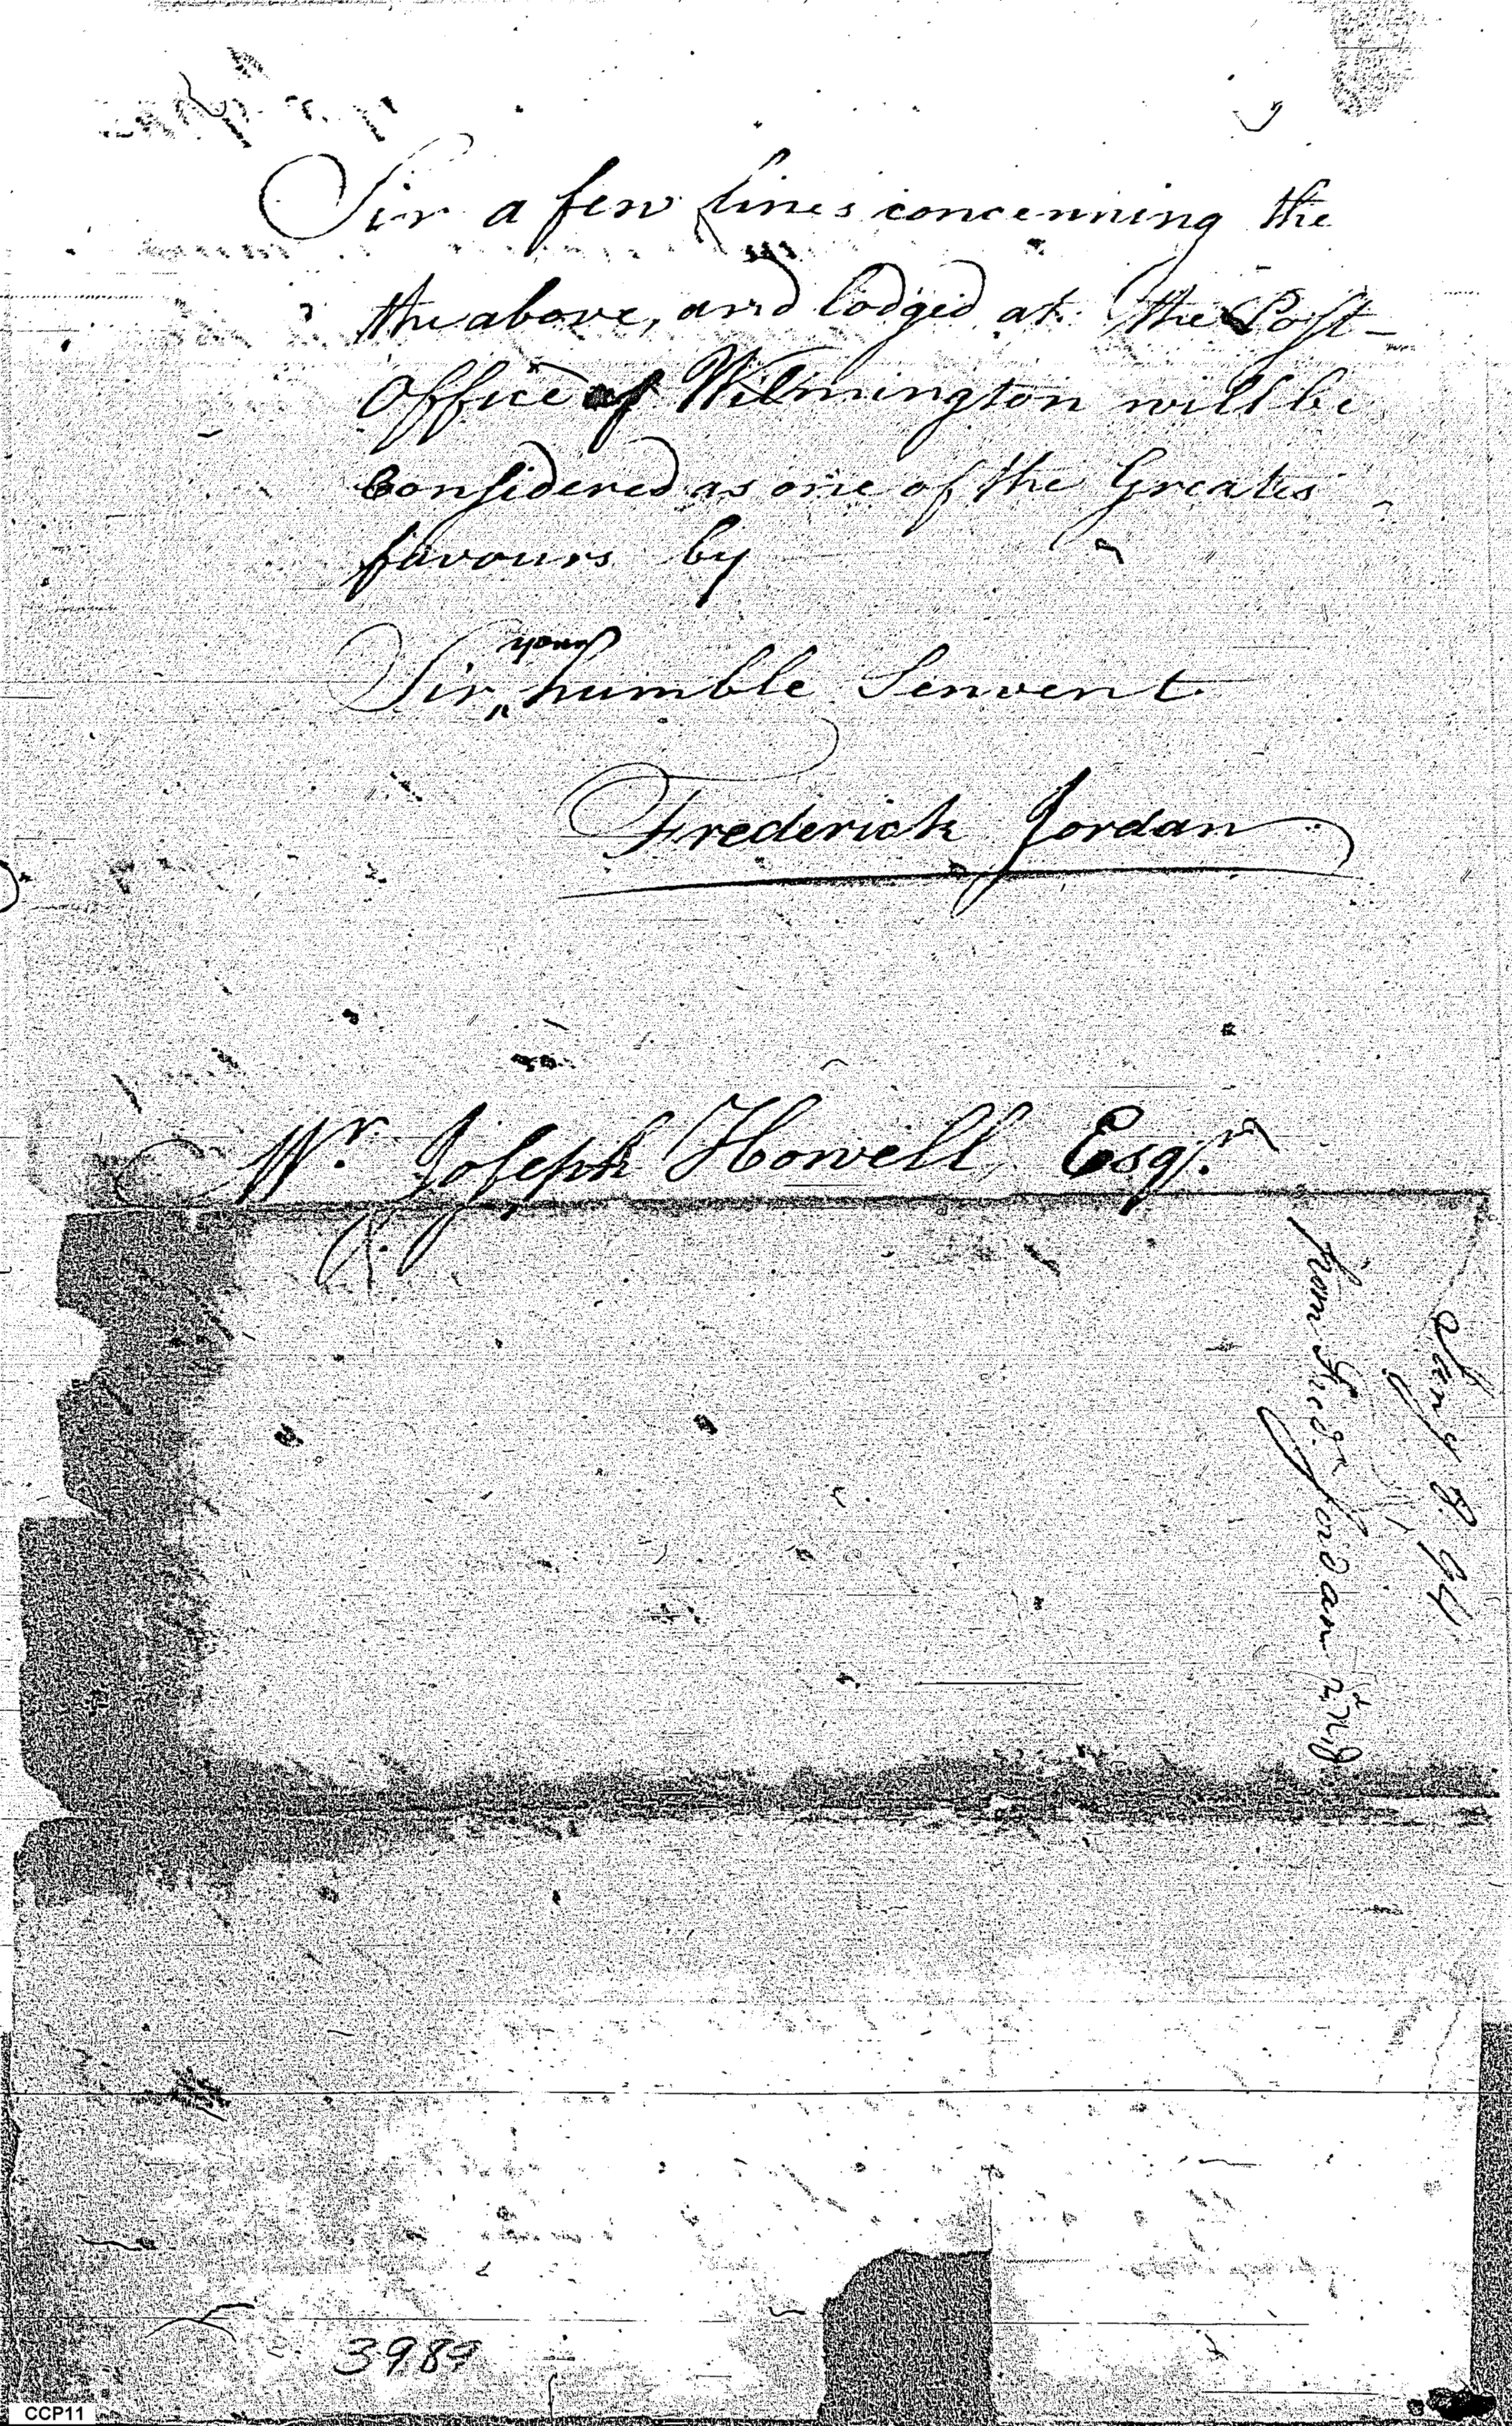 Sir a few lines concenning the
the above, and lodged at the Post-
Office of Wilmington will be
Considered as one of the Greates
favours by
your
Sir, humble Senvent
Frederick Jordan
Mr. Joseph Howell, Esqr.
July 8. 94
from Fredk Jordan
3989
CCP11